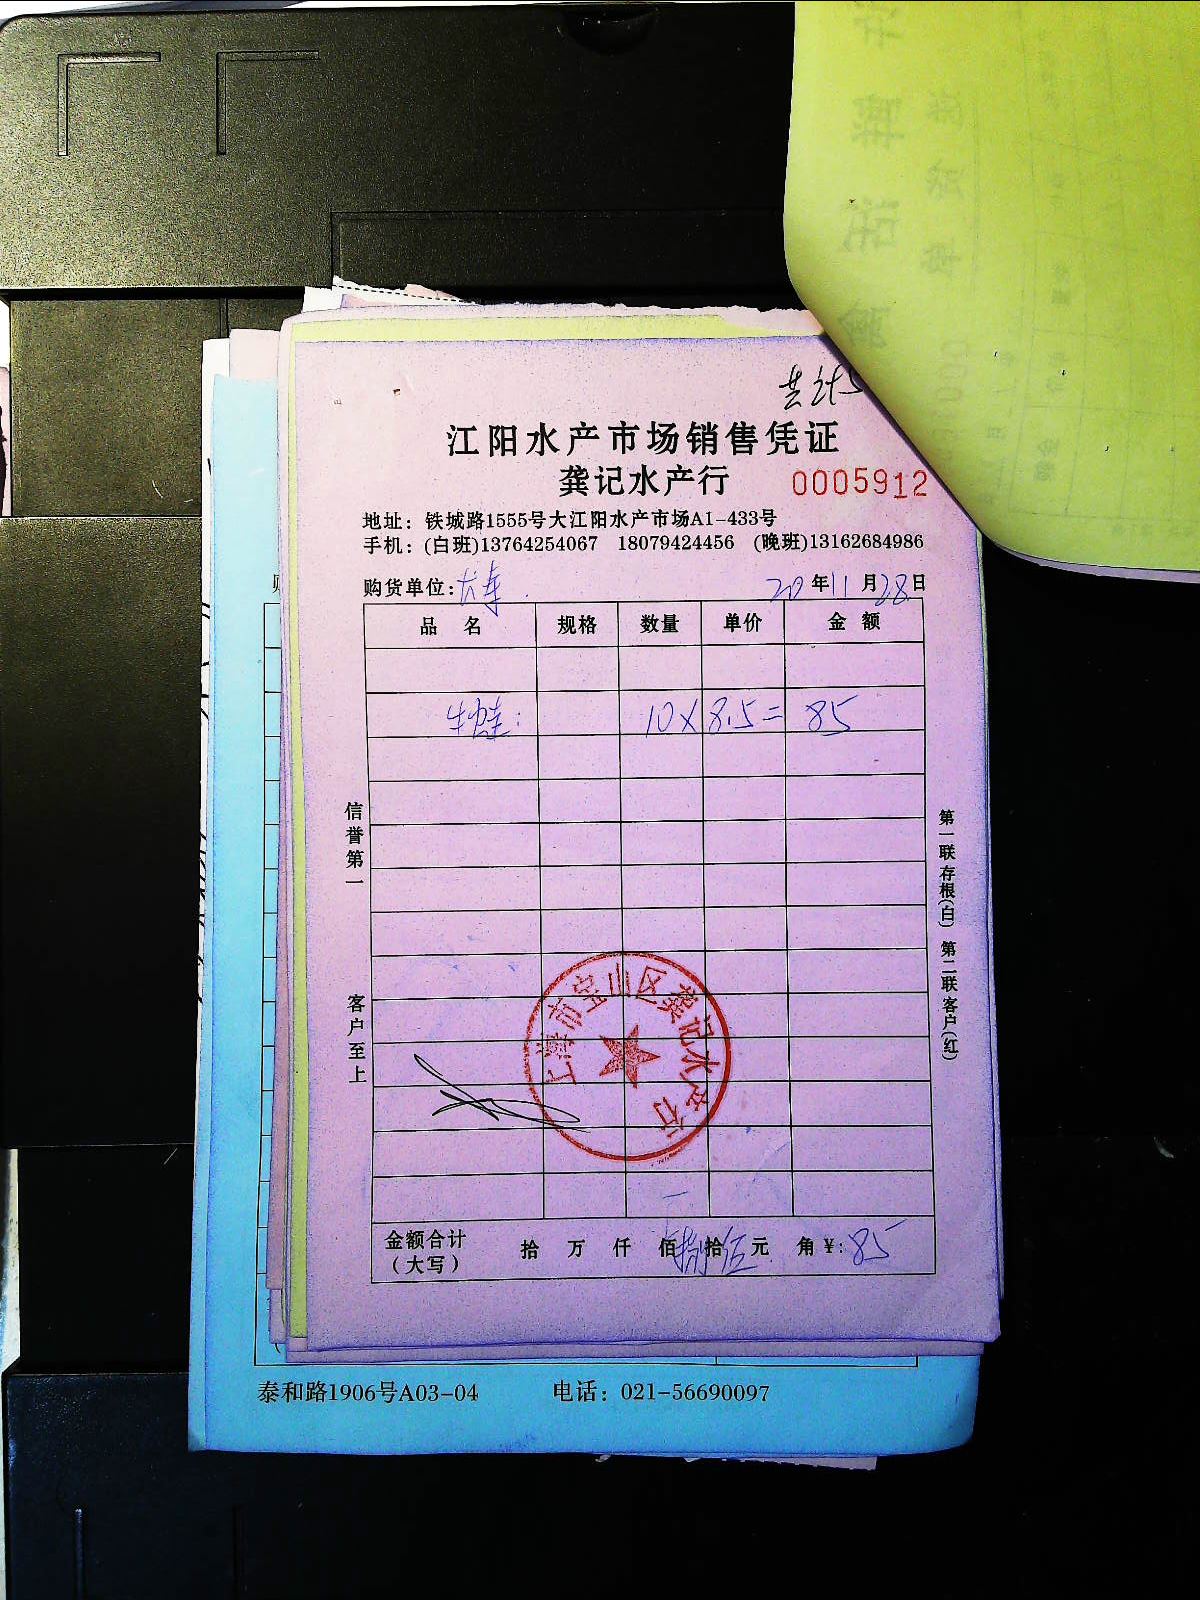 共计
江阳水产市场销售凭证
龚记水产行 0005912
地址：铁城路1555号大江阳水产市场A1-433号
手机：(白班)13764254067 18079424456 (晚班)13162684986
购货单位: 20年11月28日
品名 规格 数量 单价 金额
牛蛙: 10×8.5=85
信誉第一 客户至上
第一联存根(白) 第二联客户(红)
上海市宝山区龚记水产行
金额合计(大写) 拾 万 仟 佰 捌拾伍元 角 ¥:85
泰和路1906号A03-04 电话：021-56690097